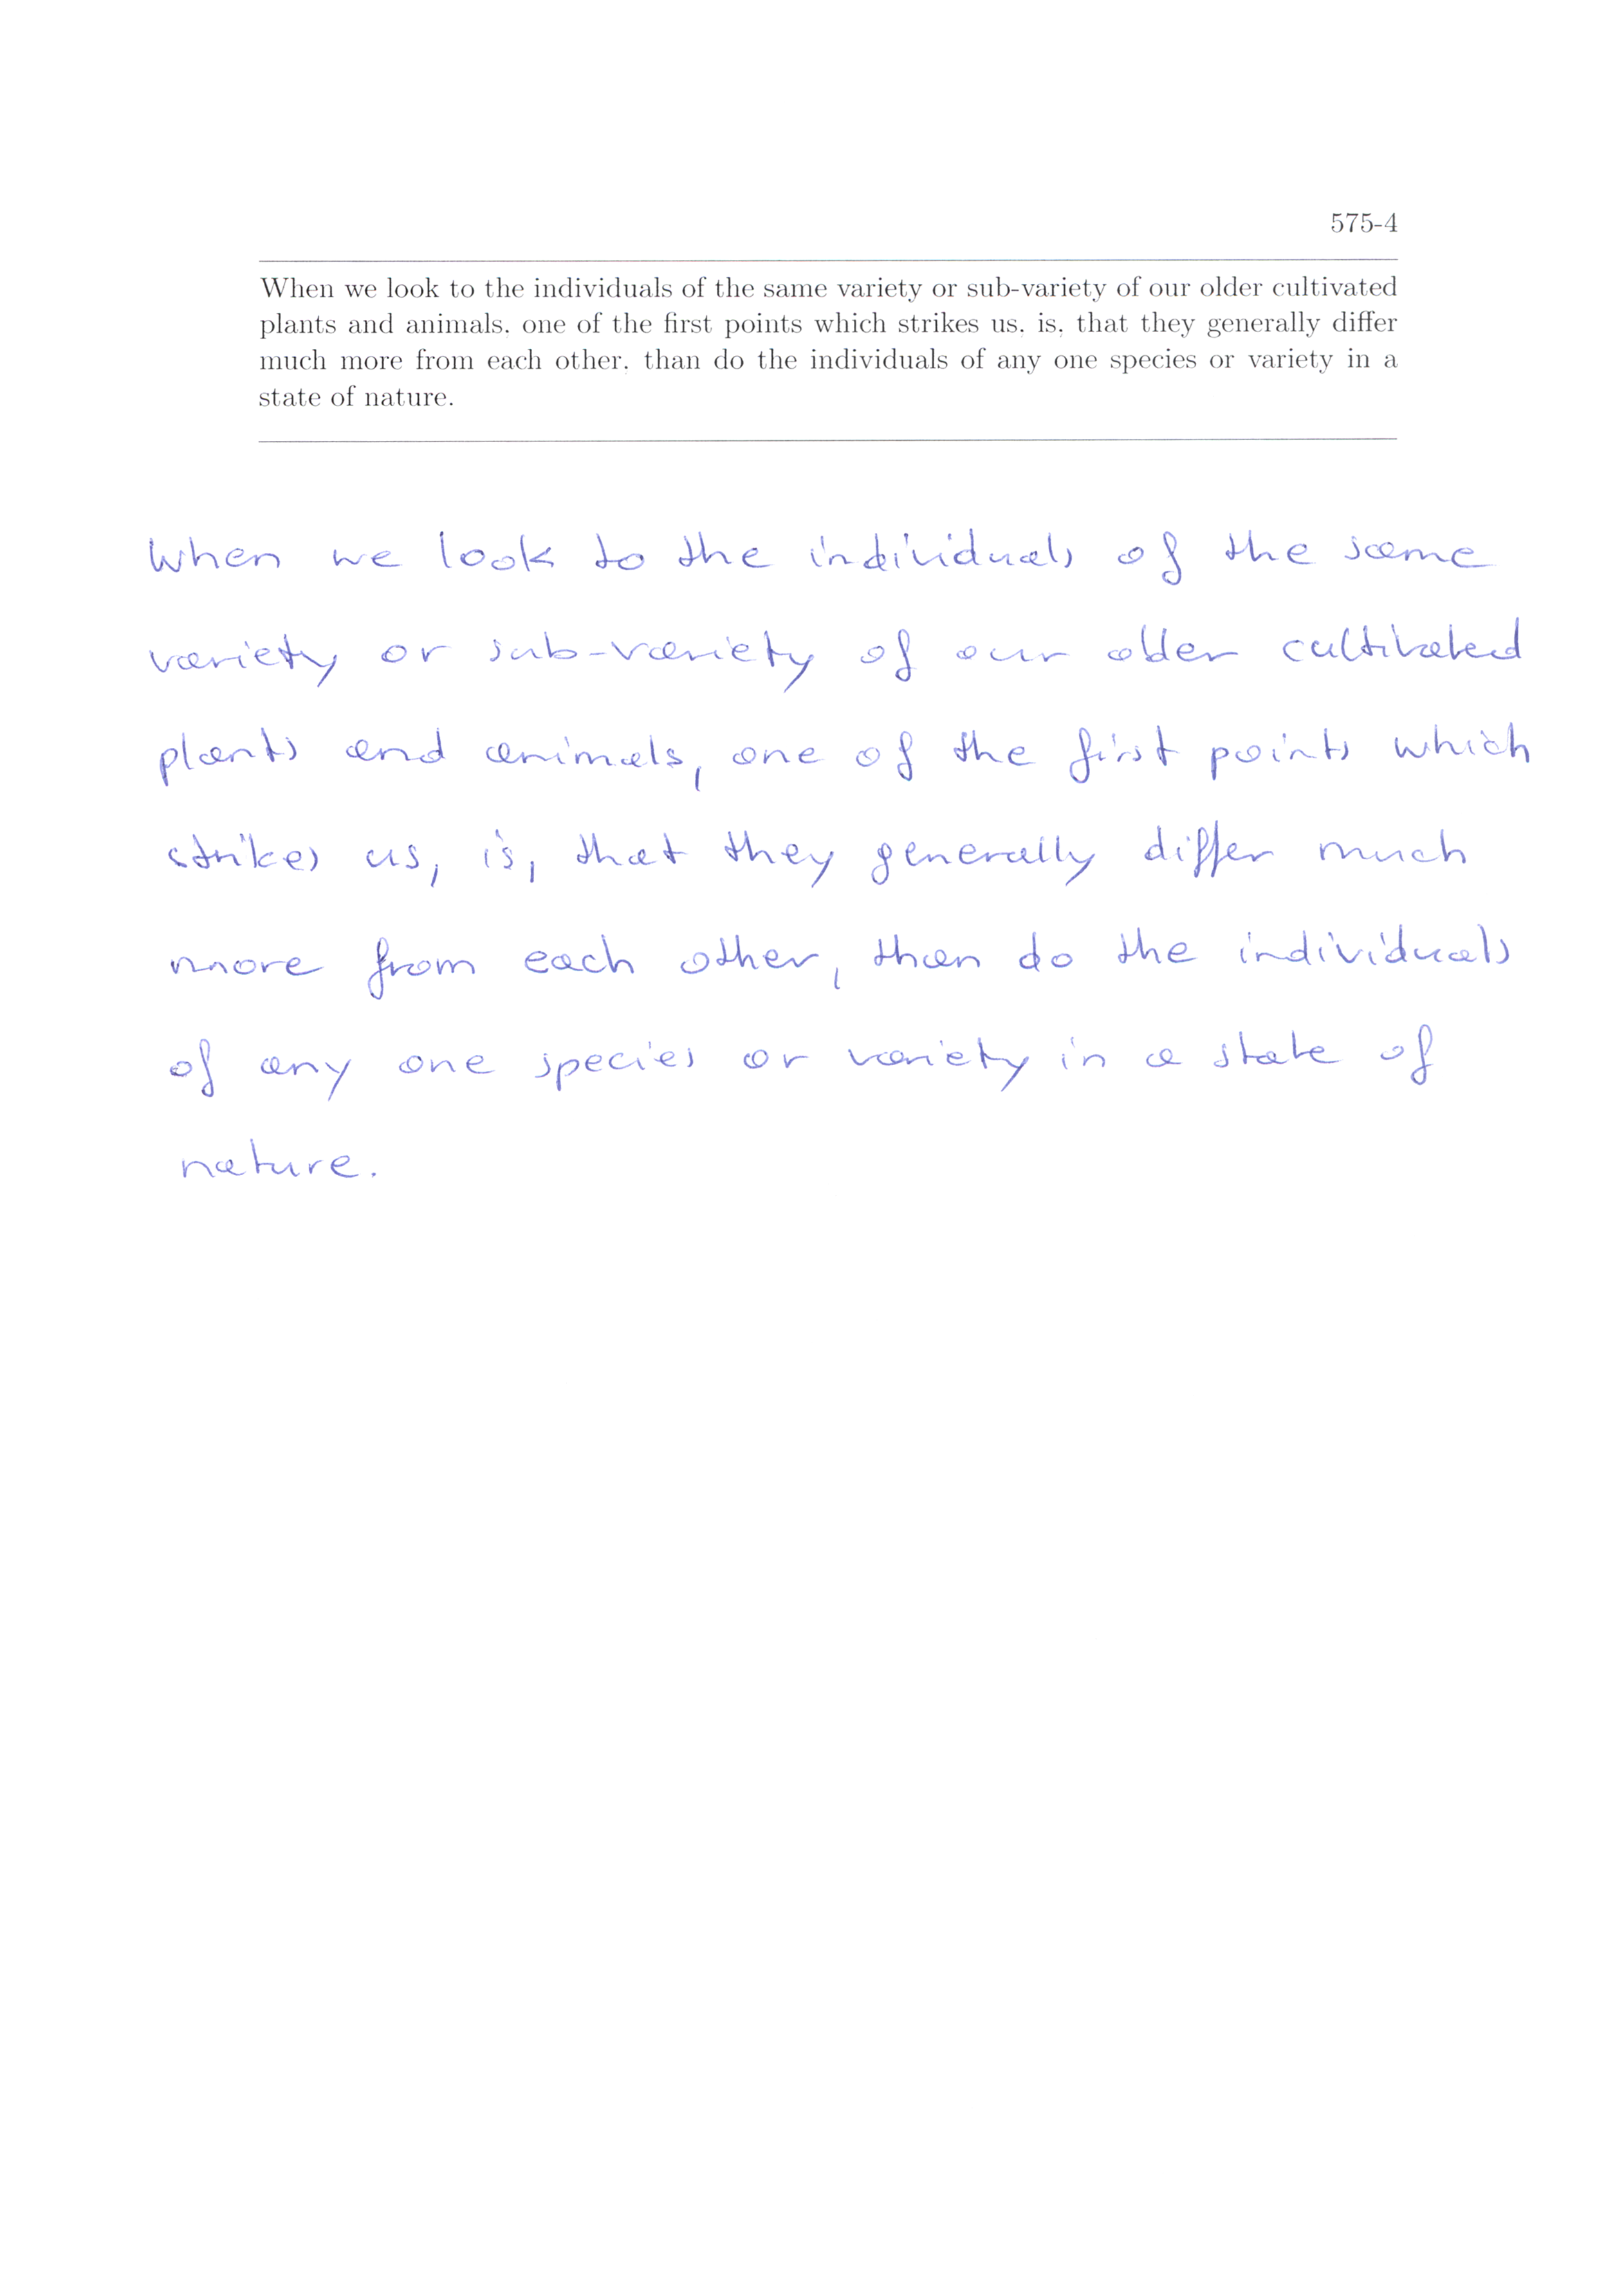 575-4
When we look to the individuals of the same variety or sub-variety of our older cultivated
plants and animals, one of the first points which strikes us, is, that they generally differ
much more from each other, than do the individuals of any one species or variety in a
state of nature.
When we look to the individuals of the same
variety or sub-variety of our older cultivated
plants and animals, one of the first points which
strikes us, is, that they generally differ much
more from each other, than do the individuals
of any one species or variety in a state of
nature.